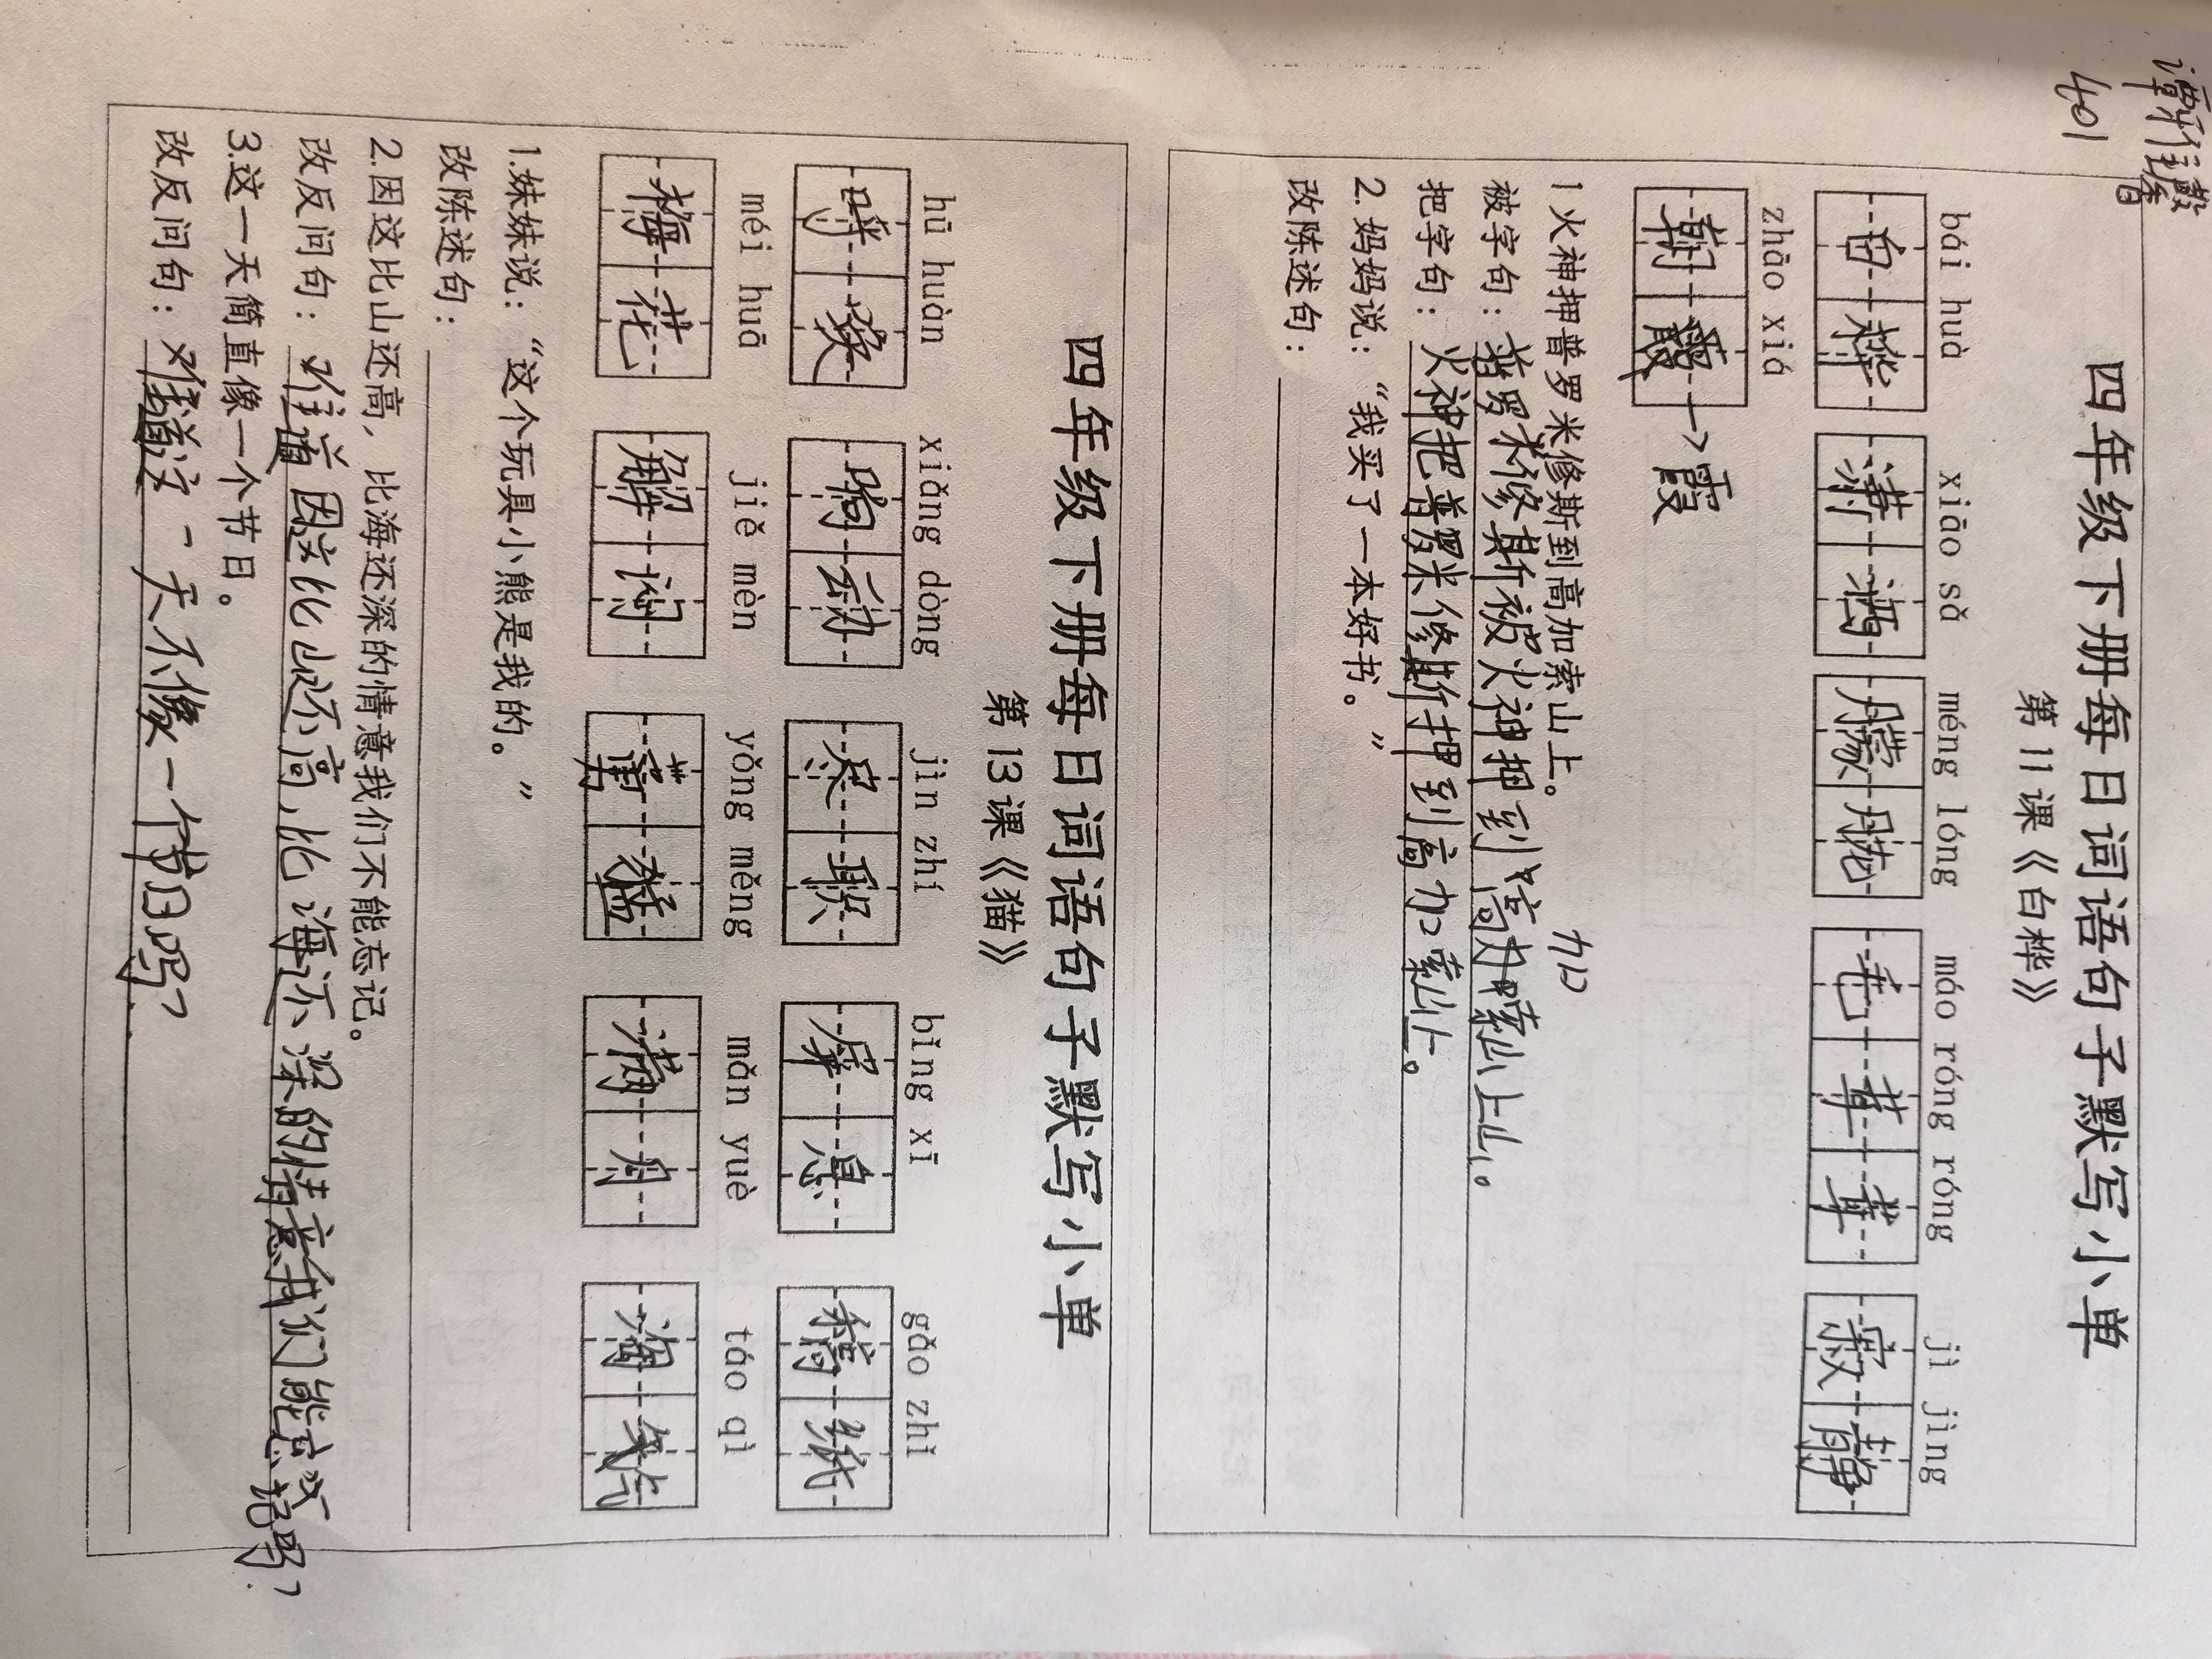 401
四年级下册每日词语句子默写小单
第11课《白桦》
bái huà xiāo sǎ méng lóng máo róng róng jì jìng
白桦 潇洒 朦胧 毛茸茸 寂静
zhāo xiá
朝霞→霞
1火神押普罗米修斯到高加索山上。
加
被字句：普罗米修斯被火神押到高加索山上。
把字句：火神把普罗米修斯押到高加索山上。
2.妈妈说：“我买了一本好书。”
改陈述句：
四年级下册每日词语句子默写小单
第13课《猫》
hū huàn xiǎng dòng jìn zhí bǐng xī gǎo zhǐ
呼唤 响动 尽职 屏息 稿纸
méi huā jiě mèn yǒng měng mǎn yuè táo qì
梅花 解闷 勇猛 满月 淘气
1.妹妹说：“这个玩具小熊是我的。”
改陈述句：
2.因这比山还高，比海还深的情意我们不能忘记。
改反问句：难道因这比山还高，比海还深的情意我们能忘记吗？
3.这一天简直像一个节日。
改反问句：难道这一天不像一个节日吗？